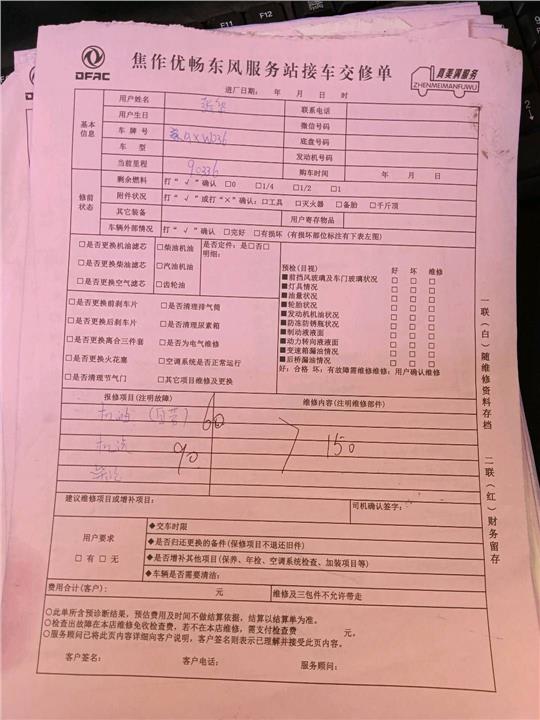 DFAC
焦作优畅东风服务站接车交修单
真美满服务
ZHENMEIMANFUWU
进厂日期： 年 月 日 时
基本信息
用户姓名 联系电话
用户生日 微信号码
车 牌 号 底盘号码
车 型 发动机号码
当前里程 90336 购车时间 年 月 日
修前状态
剩余燃料 打“√”确认 □0 □1/4 □1/2 □1
附件状况 打“√”或打“×”确认：□工具 □灭火器 □备胎 □千斤顶
其它装备 用户寄存物品
车辆外部情况 打“√”确认 □完好 □有损坏（有损坏部位标注有下表左图）
□是否更换机油滤芯 □柴油机油 是否定件：是□否□
明细：
□是否更换柴油滤芯 □汽油机油
□是否更换空气滤芯 □齿轮油
□是否更换前刹车片 □是否清理排气筒
□是否更换后刹车片 □是否清理尿素箱
□是否更换离合三件套 □是否为电气维修
□是否更换火花塞 □空调系统是否正常运行
□是否清理节气门 □其它项目维修及更换
预检(目视) 好 坏 维修
■前挡风玻璃及车门玻璃状况 □ □ □
■灯具情况 □ □ □
■油量状况 □ □ □
■轮胎状况 □ □ □
■发动机机油状况 □ □ □
■防冻防锈瓶状况 □ □ □
■制动液液面 □ □ □
■动力转向液液面 □ □ □
■变速箱漏油情况 □ □ □
■后桥漏油情况 □ □ □
好：合格 坏：有故障需维修维修：用户确认维修
报修项目(注明故障) 维修内容(注明维修部件)
60
机滤
90
150
建议维修项目或增补项目： 司机确认签字：
用户要求
□有 □无
◆交车时限
◆是否归还更换的备件(保修项目不退还旧件)
◆是否增补其他项目(保养、年检、空调系统检查、加装项目等)
◆车辆是否需要清洁：
费用合计(客户)： 元 维修及三包件不允许带走
○此单所含预诊断结果，预估费用及时间不做结算依据，结算以结算单为准。
○检查出故障在本店维修免收检查费，若不在本店维修，需支付检查费 元。
○服务顾问已将此页内容详细向客户说明，客户签名则表示已理解并接受此页内容。
客户签名： 客户电话： 服务顾问：
一联（白）随维修资料存档 二联（红）财务留存